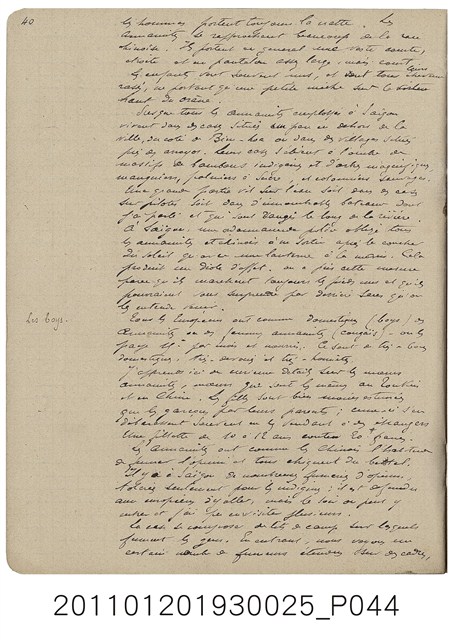 40
les hommes portent toujours la natte. Les
annamites se rapprochent beaucoup de la race
chinoise. Ils portent en général une veste courte,
étroite et un pantalon assez large, mais court.
les enfants vont souvent nus, et ont tous leurs cheveux
rasés, ne portant qu'une petite mèche sur le
haut du crâne.
Presque tous les annamites employés à Saïgon
vivent dans des cases situées en dehors de la
ville, du côté de Bien-hoa ou dans des villages situés
près des arroyos. Leurs cases s'élèvent à l'ombre de
massifs de bambous indigènes et d'arbres magnifiques,
manguiers, palmiers à sucre, et cotonniers sauvages.
Une grande partie vit sur l'eau soit dans des cases
sur pilotis soit dans d'innombrables bateaux dont
j'ai parlé et qui sont rangés le long de la rivière.
À Saïgon, une ordonnance de police oblige tous
les annamites et chinois à ne sortir après le coucher
du soleil qu'avec une lanterne à la main. Cela
produit un drôle d'effet. on a pris cette mesure
parce qu'ils marchent toujours les pieds nus et qu'ils
pourraient vous surprendre par derrière sans qu'on
les entende venir.
Les boys.
Tous les Européens ont comme domestiques (boys) des
annamites ou des femmes annamites (congaïs) - on les
paye par mois et nourris. Ce sont de très bons
domestiques, très dévoués et très honnêtes.
J'apprends ici de curieux détails sur les mœurs
annamites, mœurs qui sont les mêmes au Tonkin
et en Chine. Les filles sont bien moins estimées
que les garçons par leurs parents; ceux-ci s'en
débarrassent souvent en les vendant à des étrangers
Une fillette de 10 à 12 ans coûte 20 francs.
Les annamites ont comme les Chinois l'habitude
de fumer l'opium et tous chiquent du bétel.
Il y a à Saïgon de nombreuses fumeries d'opium,
tolérées seulement pour les indigènes; il est défendu
aux européens d'y aller, mais le soir on peut y
entrer et j'ai pu en visiter plusieurs.
La case se compose de lits de camp sur lesquels
fument les gens. En entrant, nous voyons un
certain nombre de fumeurs étendus sur des cadres,
201101201930025_P044